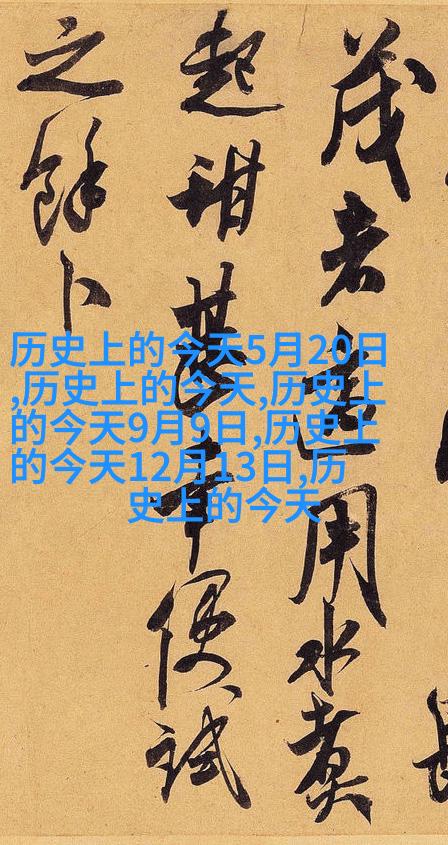 茂者用水煮
起甜甚幸便試
之餘卜
历史上的今天5月20日
,历史上的今天,历史上
的今天9月9日,历史上
的今天12月13日,历
史上的今天